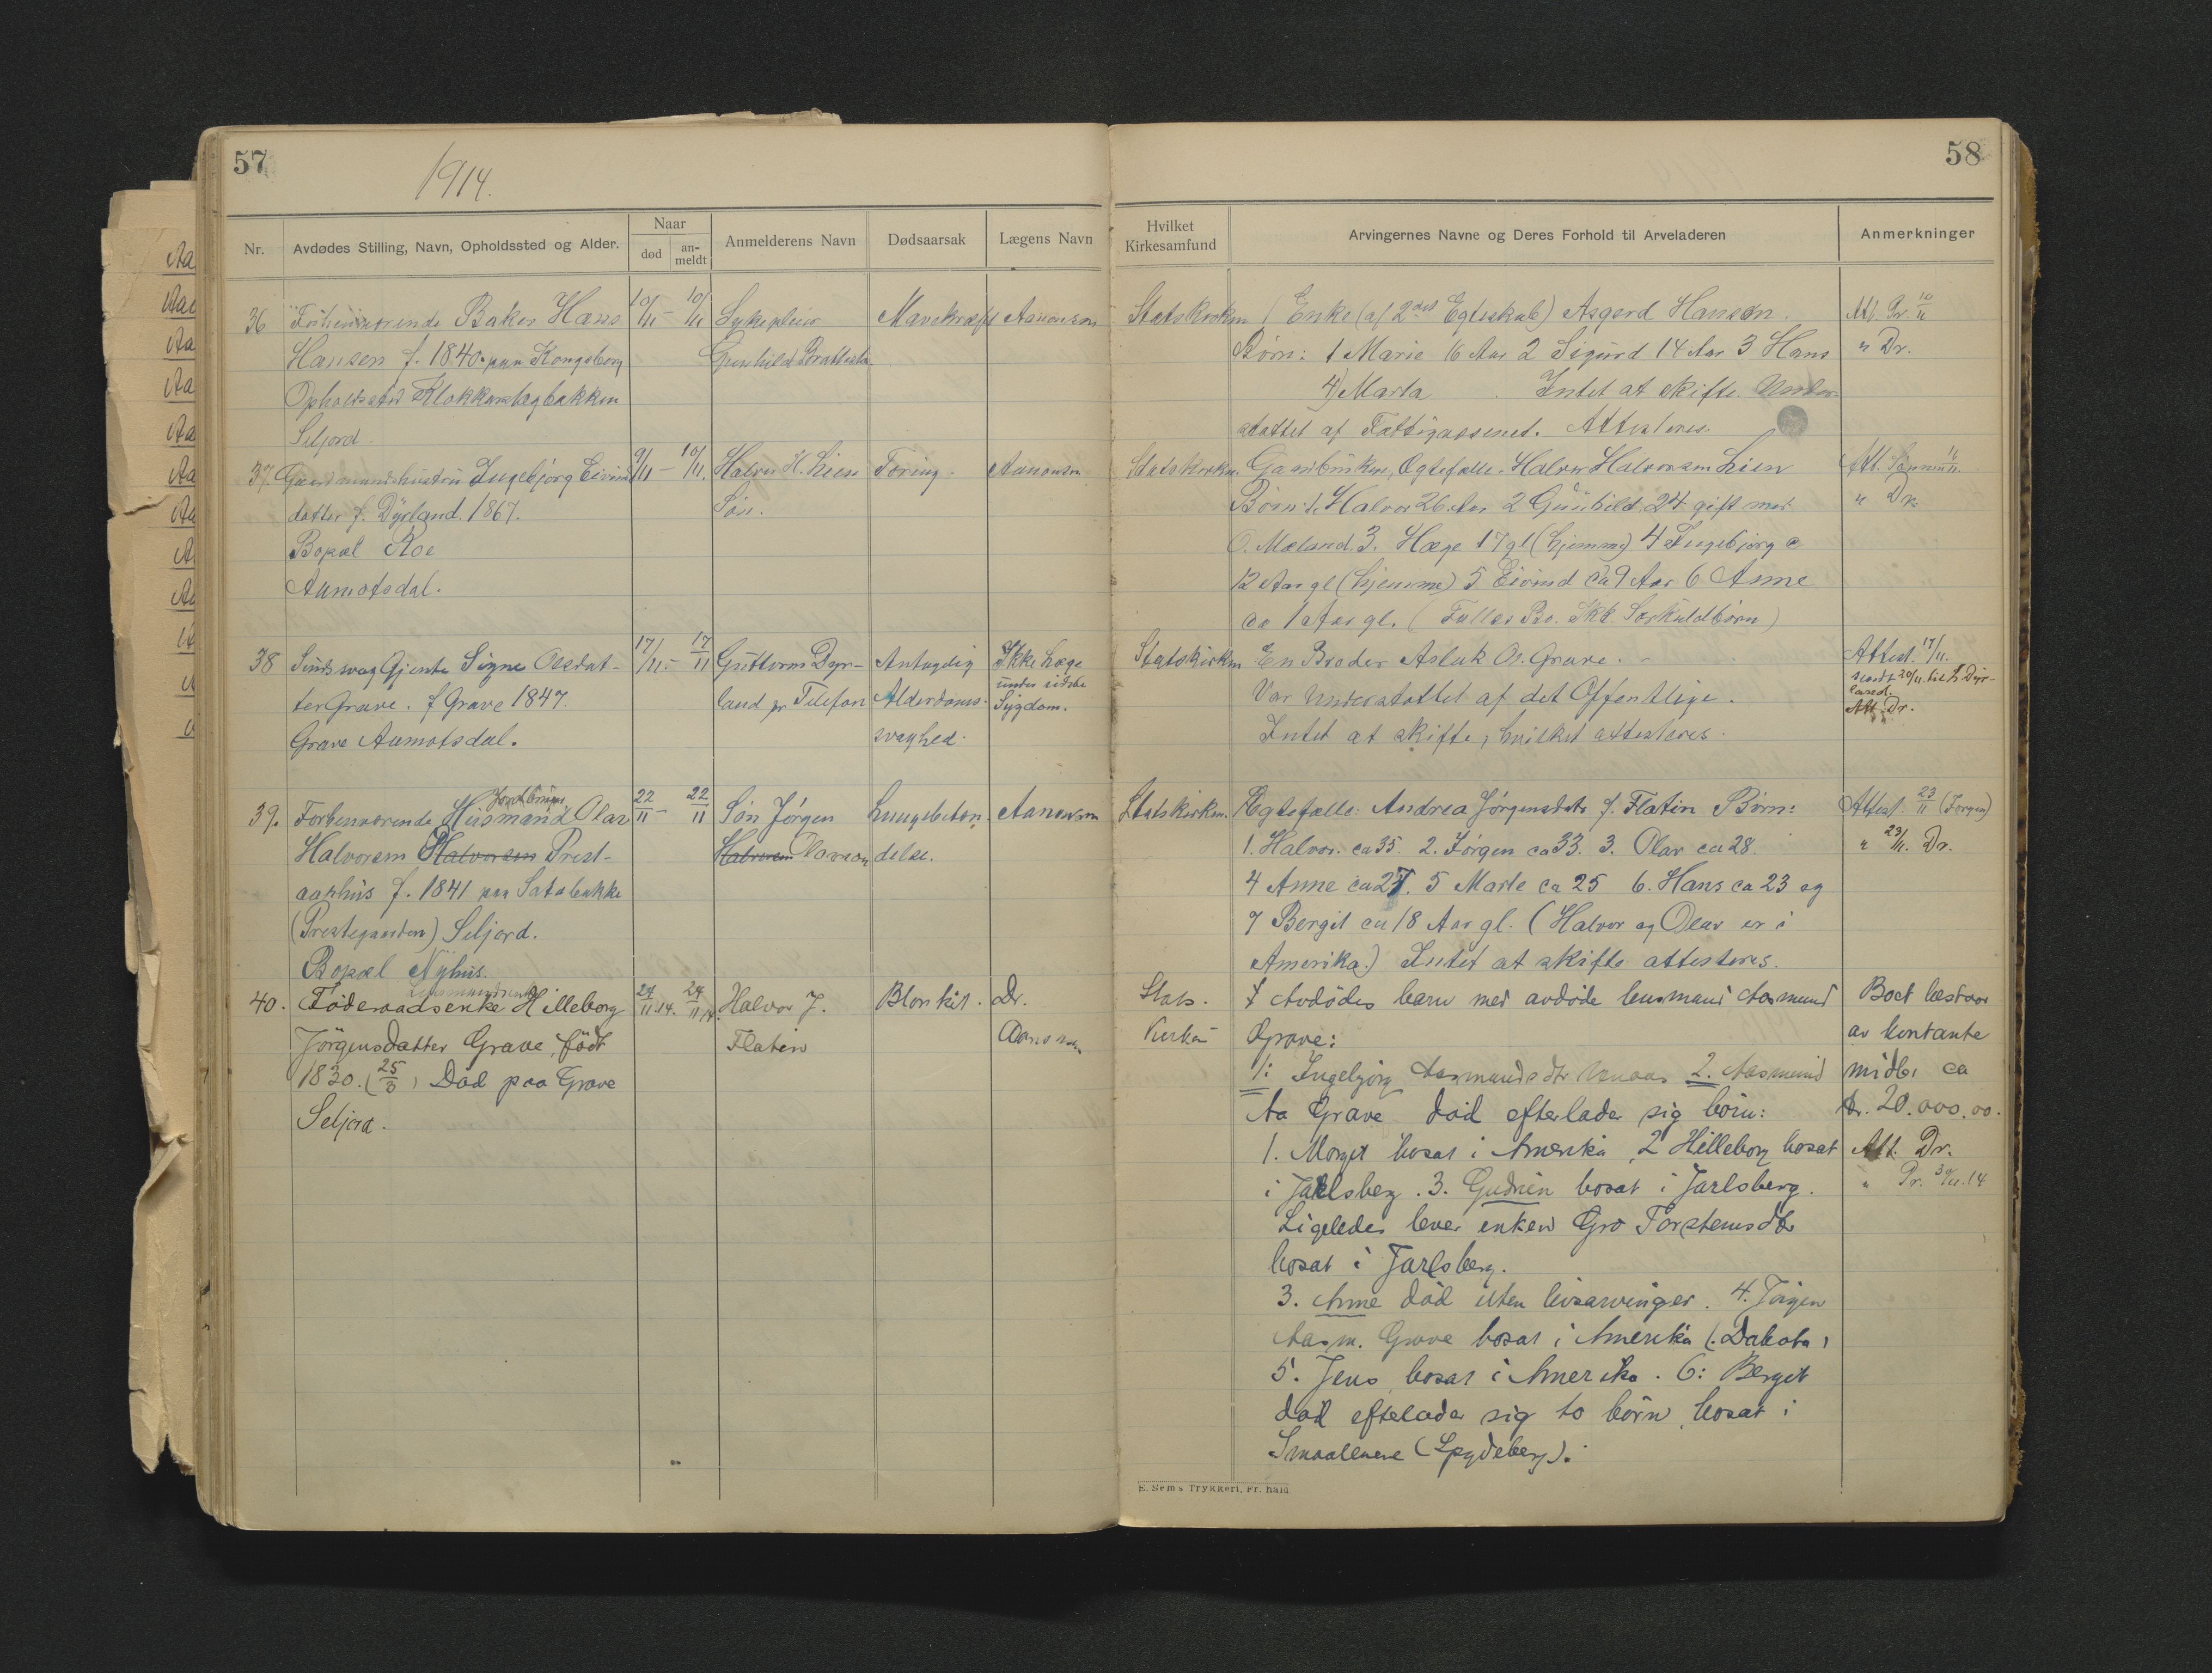 57
1914.
Nr.
Avdødes Stilling, Navn, Opholdssted og Alder.
Naar
død
an-
meldt
Anmelderens Navn
Dødsaarsak
Lægens Navn
36
Baker Hans
Hansen f. 1840 paa Kongsberg
Opholdssted
Seljord.
10/11 - 10/11
Sykepleier
Gunhild
Mavekræft
Aanonsen
37.
Gaardmandshustru Ingebjørg Eivinds
datter f. Dyrland. 1867.
Bopæl Roe
Aamotsdal.
9/11 - 10/11.
Halvor H. Lien
Søn.
Tæring.
Aanonsen
38
Sindssvag Gjente Signe Olsdat-
ter Grave. f Grave 1847.
Grave Aamotsdal.
17/11. - 17/11
Guttorm Dyr-
land pr Telefon
Antagelig
Alderdoms-
svaghed.
Ikke Læge
under sidste
Sygdom.
39.
Forhenværende Husmand Olav
Halvorsen Halvorsen Prest-
aashus f. 1841 paa
Seljord.
Bopæl Nyhus.
22/11 - 22/11
Søn Jørgen
Halvorsen Olavson
Lungebeten-
delse.
Aanonsen
40.
Föderaadsenke Hilleborg
Jörgensdatter Grave, födt
1830. Död paa Grave
Seljord.
24/11.14. 24/11 14.
Halvor J.
Flatin
Dr.
58
Hvilket
Kirkesamfund
Arvingernes Navne og Deres Forhold til Arveladeren
Anmerkninger
Statskirken
Enke (af 2det Egteskab) Asgerd Hansen.
Børn: 1 Marie 16 Aar 2 Sigurd 14 Aar 3 Hans
4) Marta Intet at skifte. Under-
støttet af Fattigvæsenet. Attesteres.
Att. Pr. 10/11
" Dr.
Statskirken.
Egtefælle. Halvor Halvorsen Lien
Børn: 1. Halvor 26 Aar 2 Gunhild 24 gift med
O. Mæland. 3. Hæge 17 gl (hjemme) 4 Ingebjørg c
12 Aar gl (hjemme) 5 Eivind ca 9 Aar 6. Anne
ca 1 Aar gl. (Fælles Bo. Ikke Særkuldbørn)
" Dr.
Statskirken
En Broder Aslak O. Grave.
Var understøttet af det Offentlige.
Intet at skifte, hvilket attesteres.
Attest. 17/11.
sendt 20/11. til Dyr-
land.
Att. Dr.
Statskirken.
Ægtefælle: Andrea Jørgensdatr f. Flatin Børn:
1. Halvor. ca 35. 2. Jørgen ca 33. 3. Olav ca 28.
4 Anne ca 27. 5 Marte ca 25 6. Hans ca 23 og
7 Bergit ca 18 Aar gl. (Halvor og Olav er i
Amerika.) Intet at skifte attesteres.
Attest. 23/11 (Jørgen)
" 23/11. Dr.
Stats.
Kirken
Avdödes barn med avdöde lensmand Aasmund
Grave:
1: Ingebjörg Aasmundsdtr 2. Aasmund
Aa Grave död efterlader sig börn:
1. Morget bosat i Amerika, 2 Hilleborg bosat
i Jarlsberg. 3. Gudrun bosat i Jarlsberg.
Ligeledes lever enken Gro Torstensdtr
bosat i Jarlsberg.
3. Anne död uten livsarvinger. 4. Jörgen
Aasm. Grave bosat i Amerika (Dakota)
5. Jens, bosat i Amerika. 6: Berget
död efterlader sig to börn, bosat i
Smaalenene (Spydeberg).
Boet bestaar
av kontante
midler ca
kr. 20.000.00.
Att. Dr.
" Pr. 30/11.14
E. Sem's Trykkeri, Fr.hald